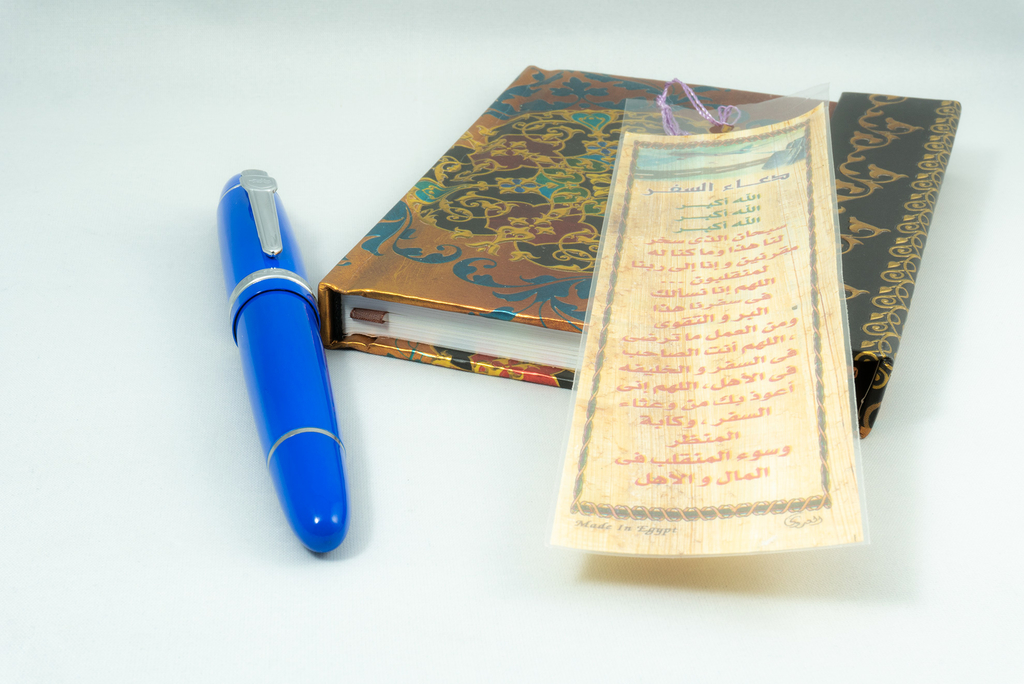 دعاء السفر
الله أكبر
الله أكبر
الله أكبر
سبحان الذى سخر
لنا هذا وما كنا له
مقرنين و إنا إلى ربنا
لمنقلبون ...
اللهم إنا نسألك
فى سفرنا هذا
البر و التقوى
ومن العمل ما ترضى
، اللهم أنت الصاحب
فى السفر و الخليفه
فى الأهل ، اللهم إنى
أعوذ بك من وعثاء
السفر ، وكآبة
المنظر
وسوء المنقلب فى
المال و الأهل
Made in Egypt